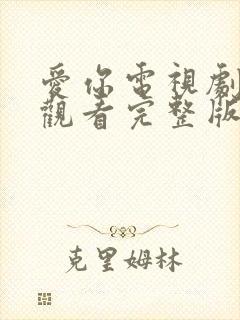 愛你電視劇
觀看完整版
克里姆林